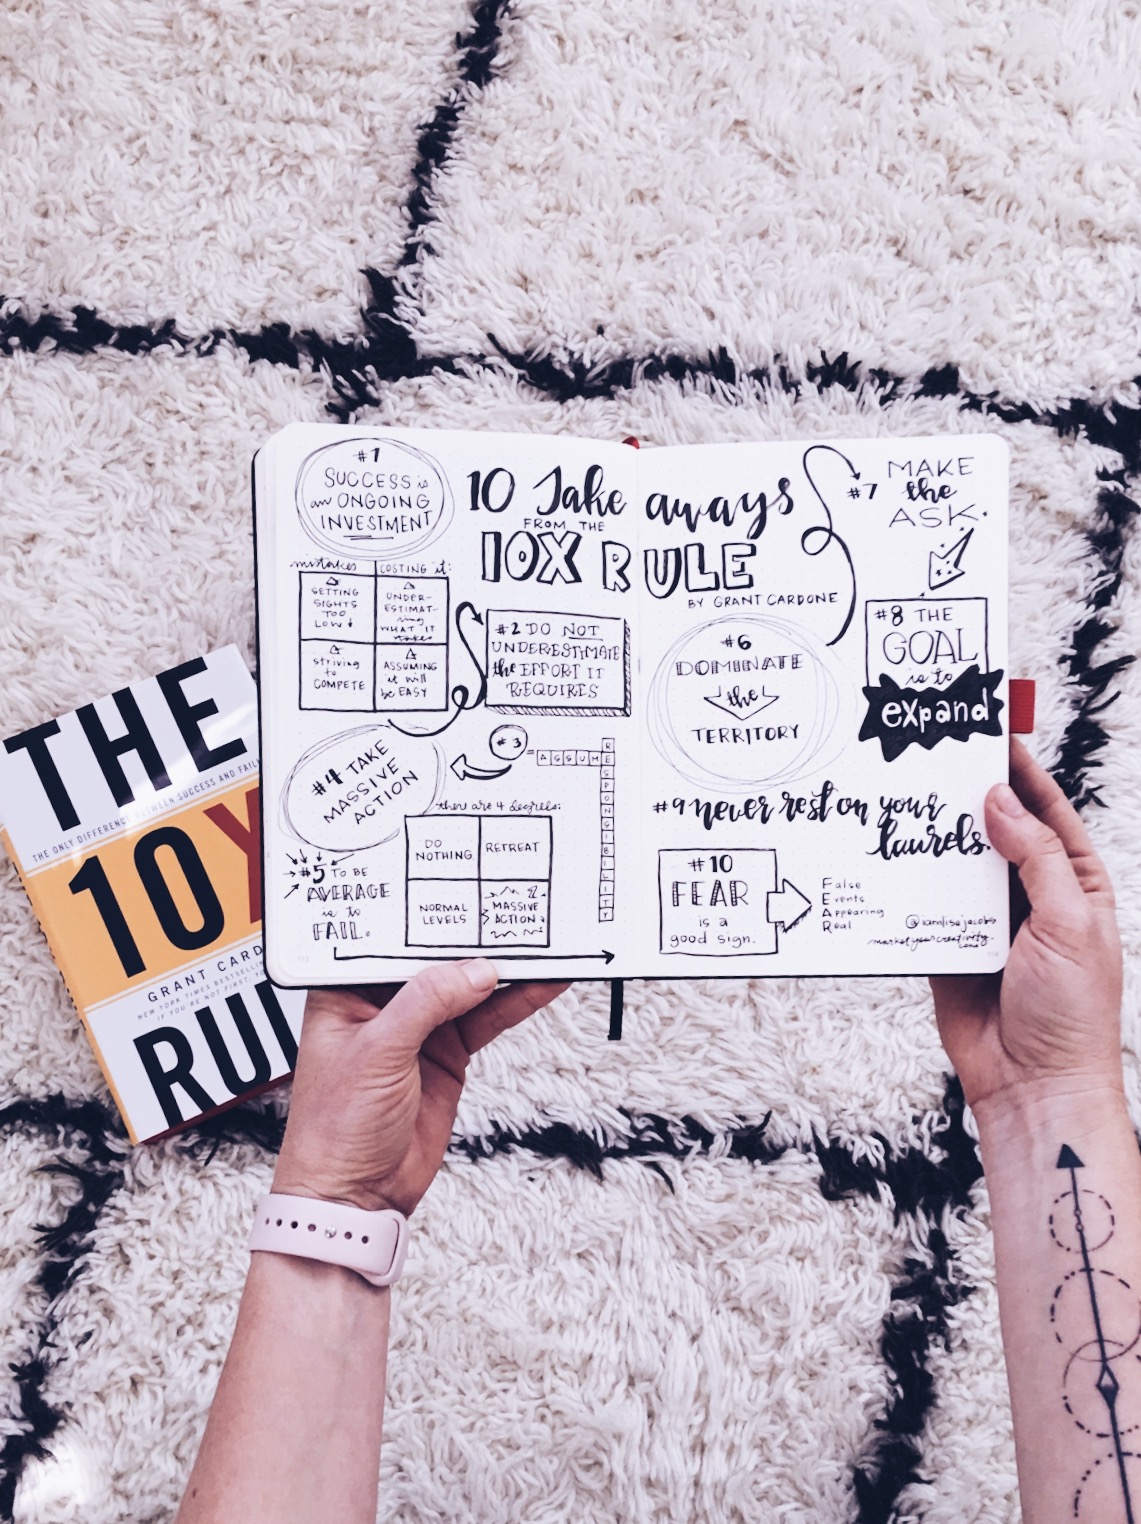 10 Take aways
FROM THE
10X RULE
BY GRANT CARDONE
#1
SUCCESS is
an ONGOING
INVESTMENT
mistakes
COSTING it:
SETTING
SIGHTS
TOO
LOW
UNDER-
ESTIMAT-
ing
WHAT IT
takes
striving
to
COMPETE
ASSUMING
it will
be EASY
#2 DO NOT
UNDERESTIMATE
the EFFORT IT
REQUIRES
#3
= ASSUME
RESPONSIBILITY
#4 TAKE
MASSIVE
ACTION
there are 4 degrees:
DO
NOTHING
RETREAT
NORMAL
LEVELS
MASSIVE
ACTION
#5 TO BE
AVERAGE
is to
FAIL.
#6
DOMINATE
the
TERRITORY
#7 MAKE
the
ASK.
#8 THE
GOAL
is to
expand
#9 never rest on your
laurels.
#10
FEAR
is a
good sign.
False
Events
Appearing
Real
@iamlisajacobs
marketyourcreativity.
THE
THE ONLY DIFFERENCE BETWEEN SUCCESS AND FAIL
10X
GRANT CARD
NEW YORK TIMES BESTSELLIN
IF YOU'RE NOT FIRST, Y
RUL